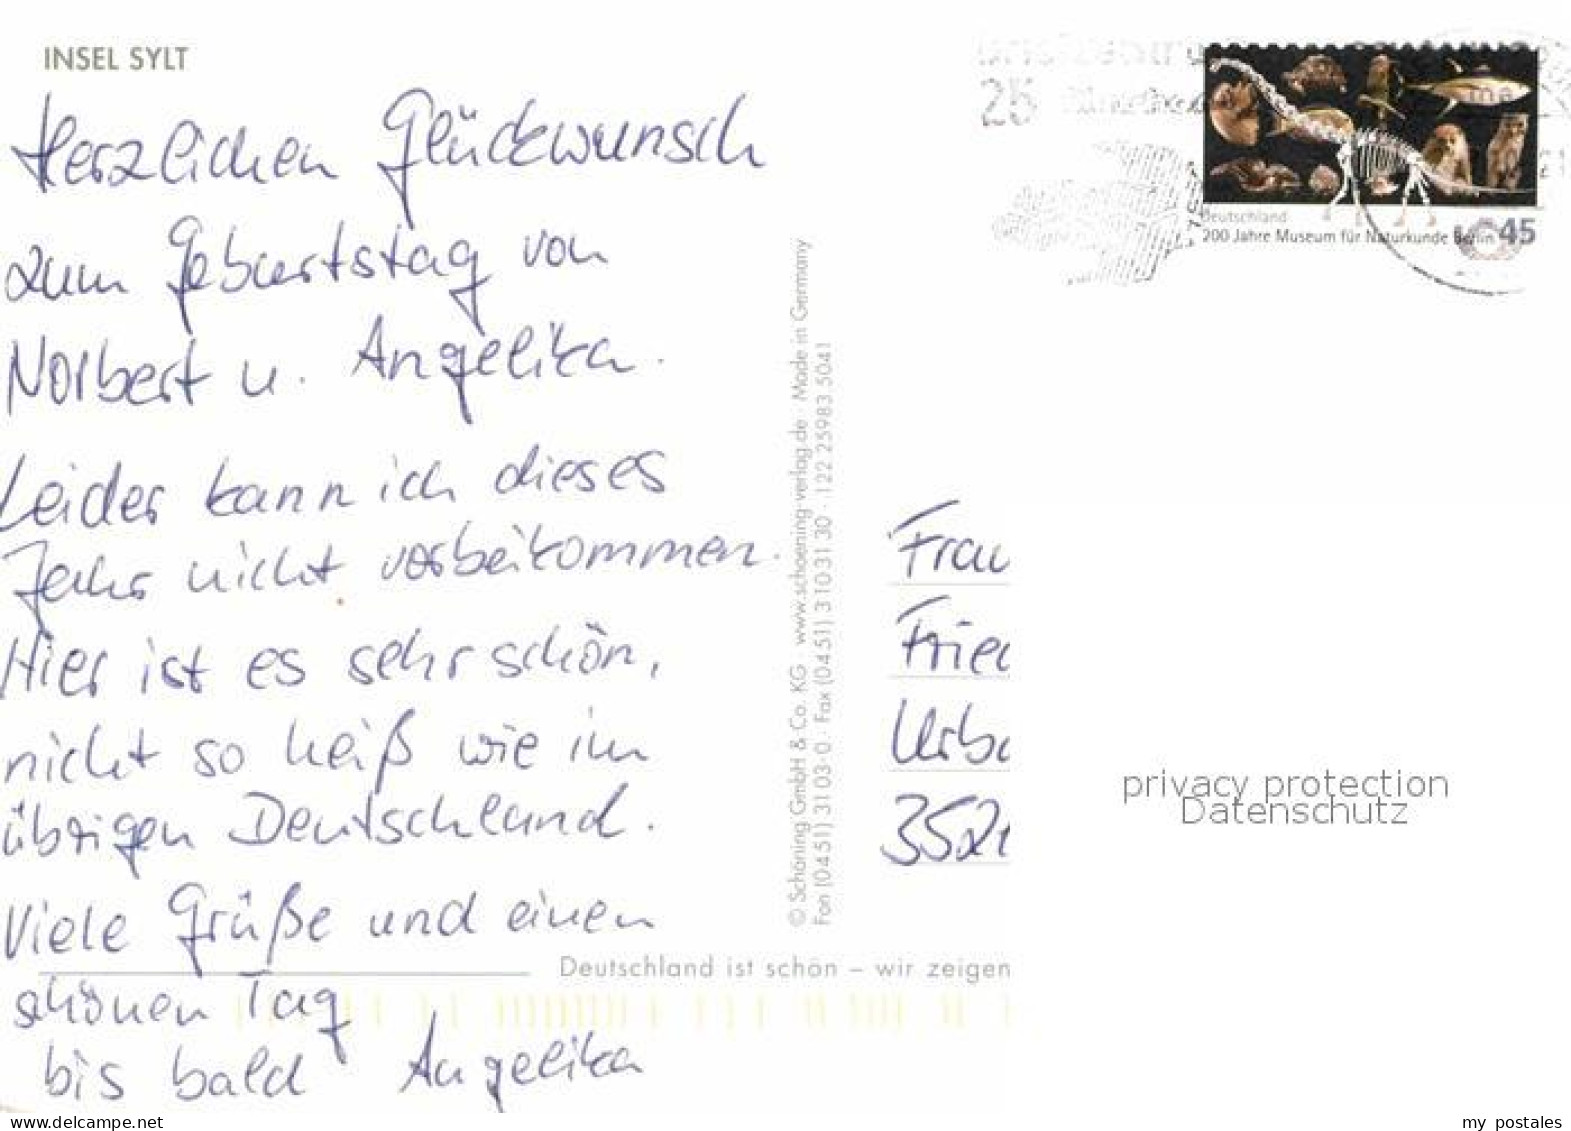 INSEL SYLT
Herzlichen Glückwunsch
zum Geburtstag von
Norbert u. Angelika.
Leider kann ich dieses
Jahr nicht vorbeikommen.
Hier ist es sehr schön,
nicht so heiß wie im
übrigen Deutschland.
Viele Grüße und einen
schönen Tag
bis bald Angelika
© Schöning GmbH & Co. KG · www.schoening-verlag.de · Made in Germany
Fon (0451) 31 03-0 · Fax (0451) 3 10 31 30 · 122 25983 5041
Deutschland ist schön – wir zeigen
25
Deutschland
200 Jahre Museum für Naturkunde Berlin 45
Frau
Fried
Urba
352
privacy protection
Datenschutz
www.oldthing.net
my_postales